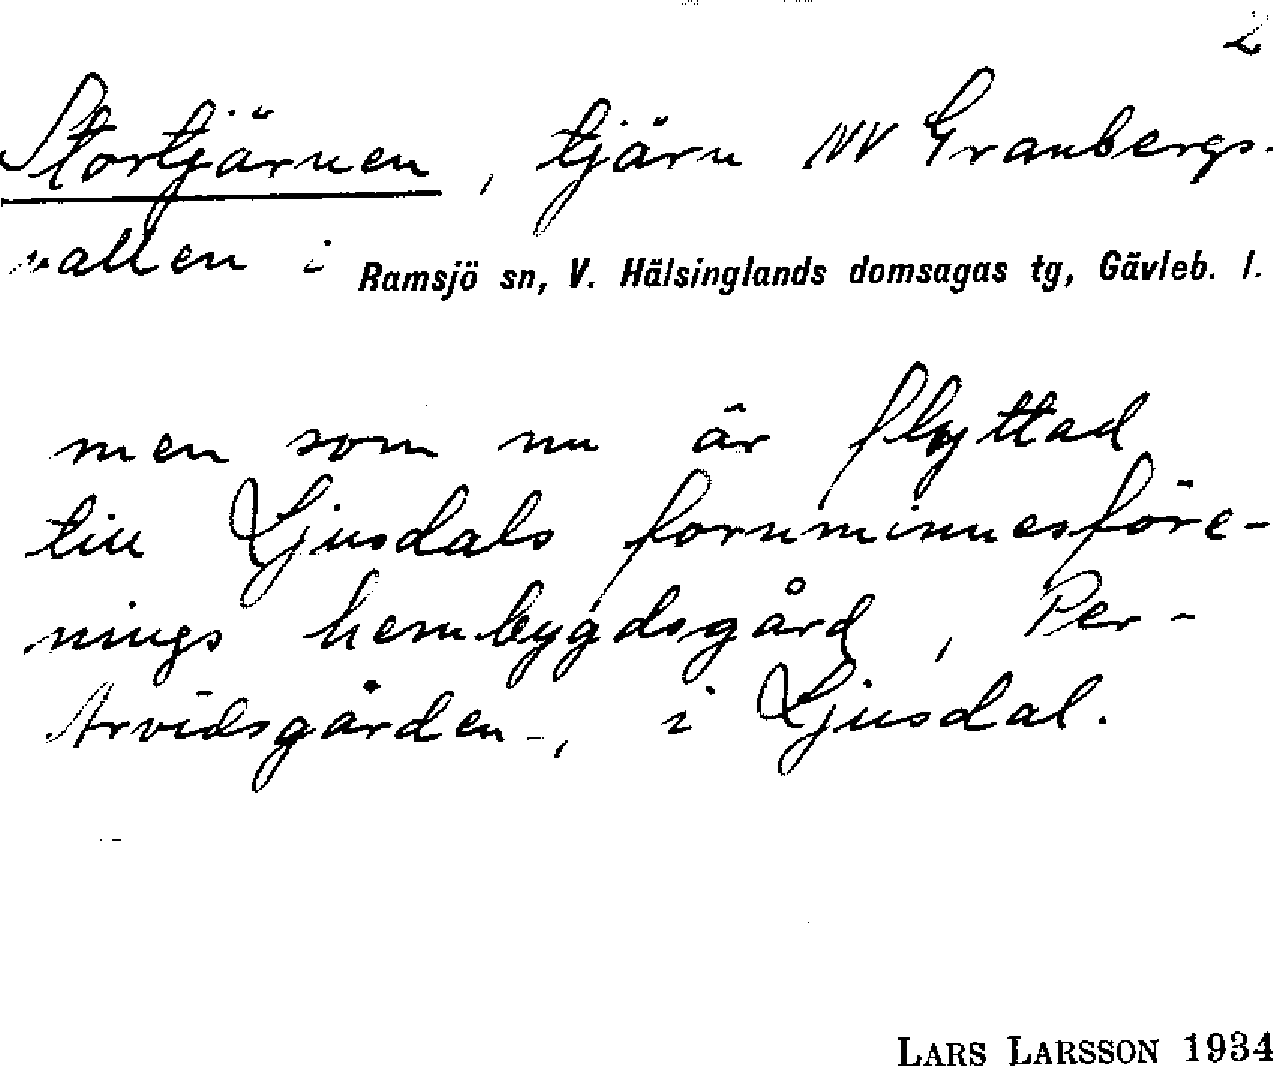 2
Stortjärnen, tjärn NV Granbergs-
vallen i Ramsjö sn, V. Hälsinglands domsagas tg, Gävleb. l.
men som nu är flyttad
till Ljusdals fornminnesföre-
nings hembygdsgård, Per-
Arvidsgården-, i Ljusdal.
LARS LARSSON 1934